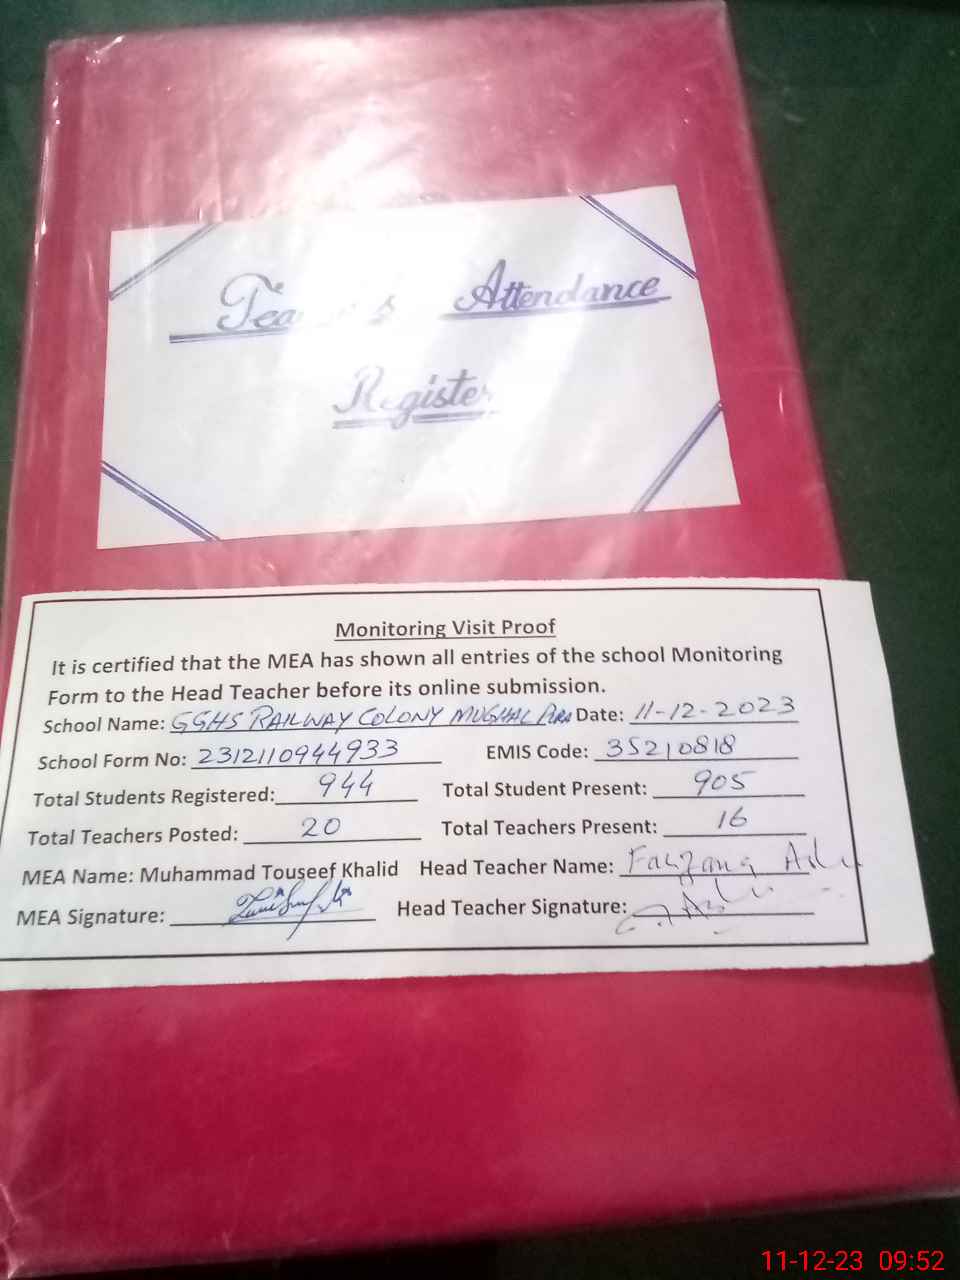 Attendance
Register
Monitoring Visit Proof
It is certified that the MEA has shown all entries of the school Monitoring
Form to the Head Teacher before its online submission.
School Name: GGHS RAILWAY COLONY MUGHAL PURA Date: 11-12-2023
School Form No: 2312110944933 EMIS Code: 35210818
Total Students Registered: 944 Total Student Present: 905
Total Teachers Posted: 20 Total Teachers Present: 16
MEA Name: Muhammad Touseef Khalid Head Teacher Name:
MEA Signature: Head Teacher Signature:
11-12-23 09:52